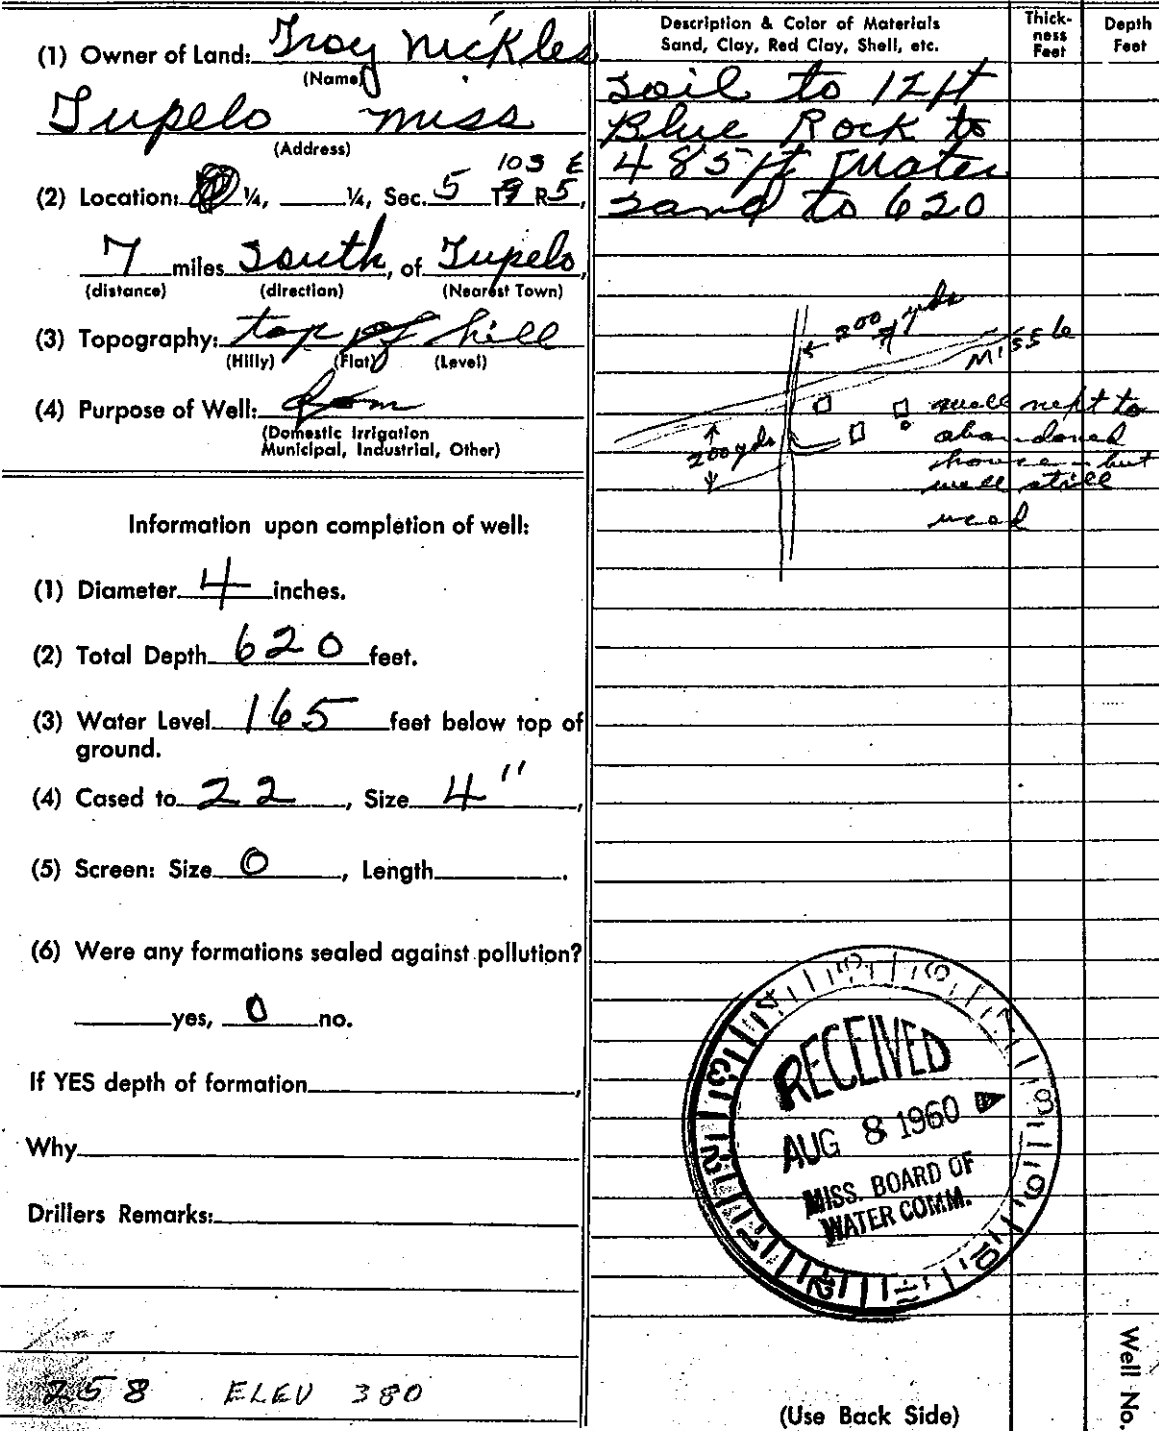 (1) Owner of Land: Troy Nickles
(Name)
Tupelo miss
(Address)
10S E
(2) Location: ¼, ____¼, Sec. 5 T9 R5,
7 miles South, of Tupelo,
(distance) (direction) (Nearest Town)
(3) Topography: top of hill
(Hilly) (Flat) (Level)
(4) Purpose of Well:
(Domestic Irrigation
Municipal, Industrial, Other)
Information upon completion of well:
(1) Diameter 4 inches.
(2) Total Depth 620 feet.
(3) Water Level 165 feet below top of
ground.
(4) Cased to 22, Size 4",
(5) Screen: Size 0, Length____.
(6) Were any formations sealed against pollution?
____yes, 0 no.
If YES depth of formation____,
Why____
Drillers Remarks:____
258 ELEV 380
Description & Color of Materials
Sand, Clay, Red Clay, Shell, etc.
Thick-
ness
Feet
Depth
Feet
Soil to 12 ft
Blue Rock to
485 ft Water
sand to 620
300 yds
Miss 6
200 yds
well next to
abandoned
house - but
well still
used
RECEIVED
AUG 8 1960
MISS. BOARD OF
WATER COMM.
(Use Back Side)
Well No.